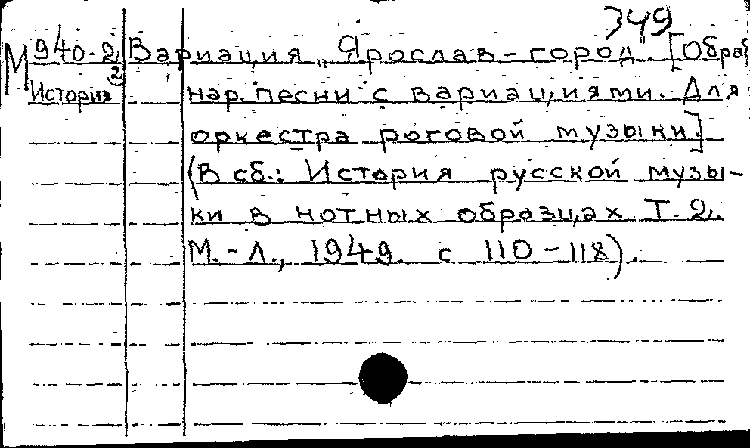 349
М 940-2 Вариация „Ярослав-город". [Обраб
2
История нар. песни с вариациями. Для
оркестра роговой музыки.]
(В сб.: История русской музы-
ки в нотных образцах Т. 2.
М.-Л., 1949. с 110-118).